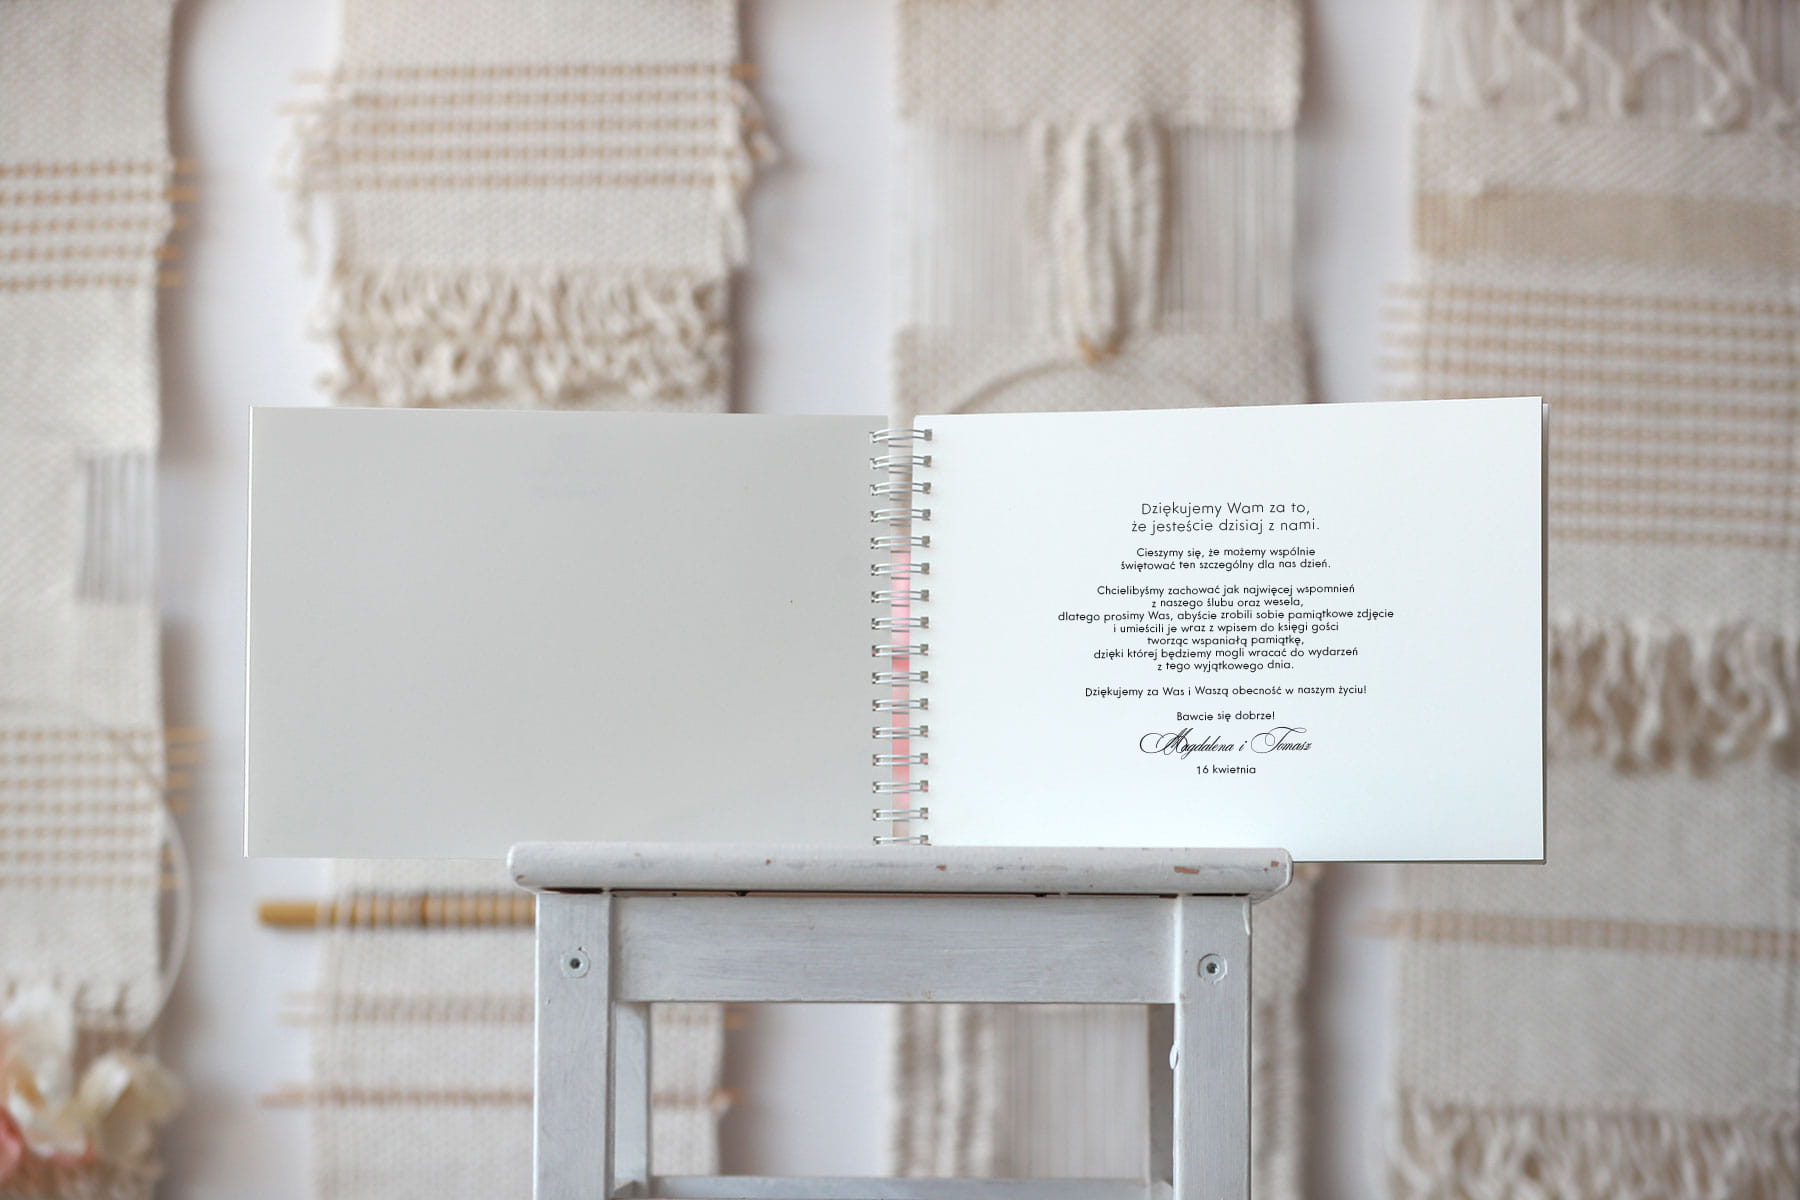 Dziękujemy Wam za to,
że jesteście dzisiaj z nami.
Cieszymy się, że możemy wspólnie
świętować ten szczególny dla nas dzień.
Chcielibyśmy zachować jak najwięcej wspomnień
z naszego ślubu oraz wesela,
dlatego prosimy Was, abyście zrobili sobie pamiątkowe zdjęcie
i umieścili je wraz z wpisem do księgi gości
tworząc wspaniałą pamiątkę,
dzięki której będziemy mogli wracać do wydarzeń
z tego wyjątkowego dnia.
Dziękujemy za Was i Waszą obecność w naszym życiu!
Bawcie się dobrze!
Magdalena i Tomasz
16 kwietnia